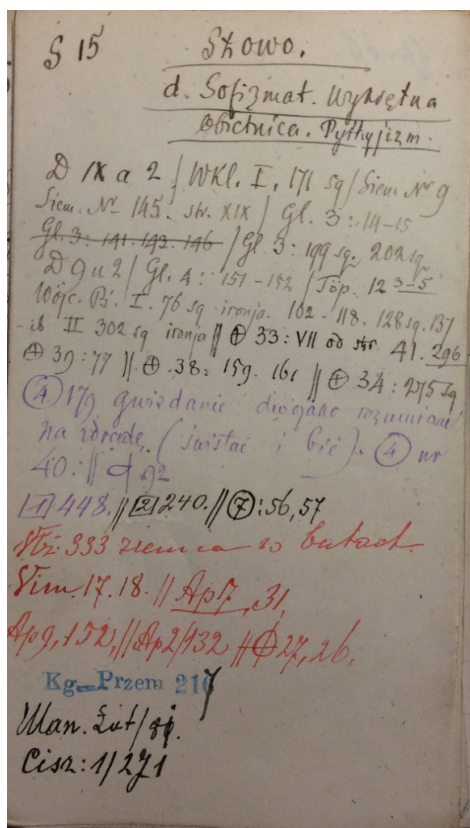 S 15 Słowo.
d. Sofizmat. Wykrętna
obietnica. Pythyjizm.
D IX a 2 / WKl. I. 171 sq / Siem. Nr 9
Siem. Nr 145. str. XIX / Gl. 3: 14-15
Gl. 3: 141. 143. 146 / Gl. 3: 199 sq. 202 sq
D 9 a 2 / Gl. 4: 151-152 / Töp. 123-5
Wójc. Bí. I. 76 sq ironja. 102. 118. 128 sq. 137
- ib II 302 sq ironja || ⊕ 33: VII od str 41. 296
⊕ 39: 77 || ⊕ 38: 159. 161 || ⊕ 34: 275 sq
④ 179 gwizdanie dwojako rozumiane
na zdradę (świstać i bić). ④ nr
40: || 92
1 448. || 2 240. || ⑦: 56, 57
333 ziemia w butach.
17. 18. || Ap 7, 31,
Ap 9, 152, || Ap 2/932 || 27, 26.
Kg-Przem 217
Man. Lut/
Cisz: 1/271